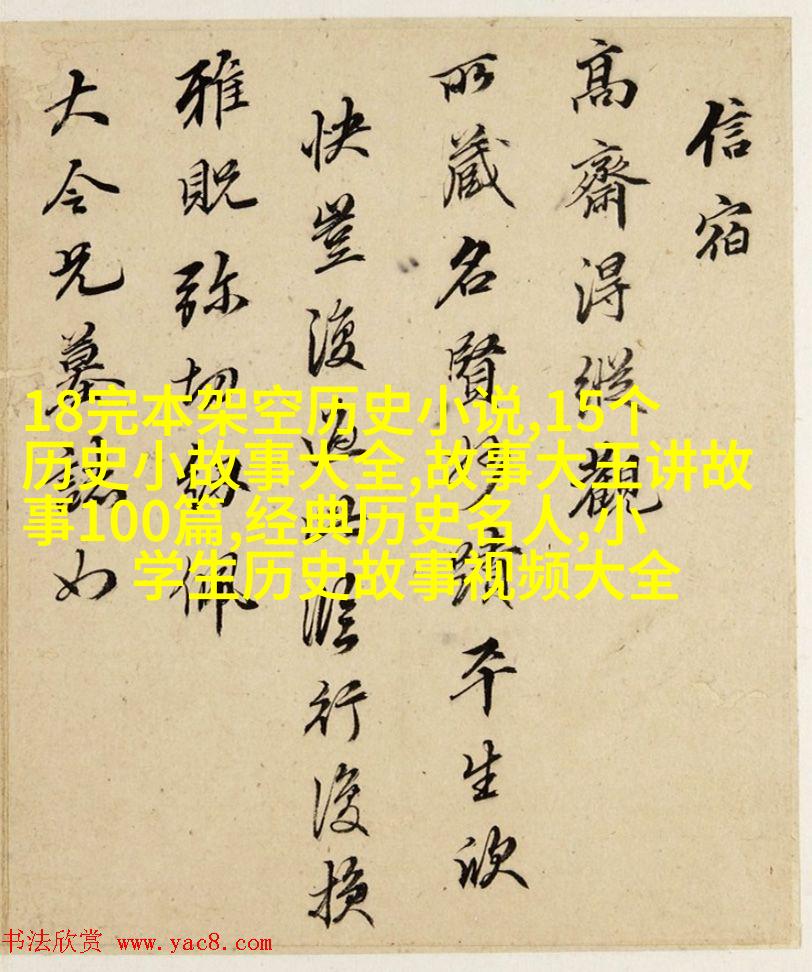 信宿
高齋得縱觀
所藏名賢蹟平生欣
快豈復過此臨行復損
雅貺弥切佩
大令兄墓誌如
18完本架空历史小说,15个
历史小故事大全,故事大王讲故
事100篇,经典历史名人,小
学生历史故事视频大全
书法欣赏 www.yac8.com